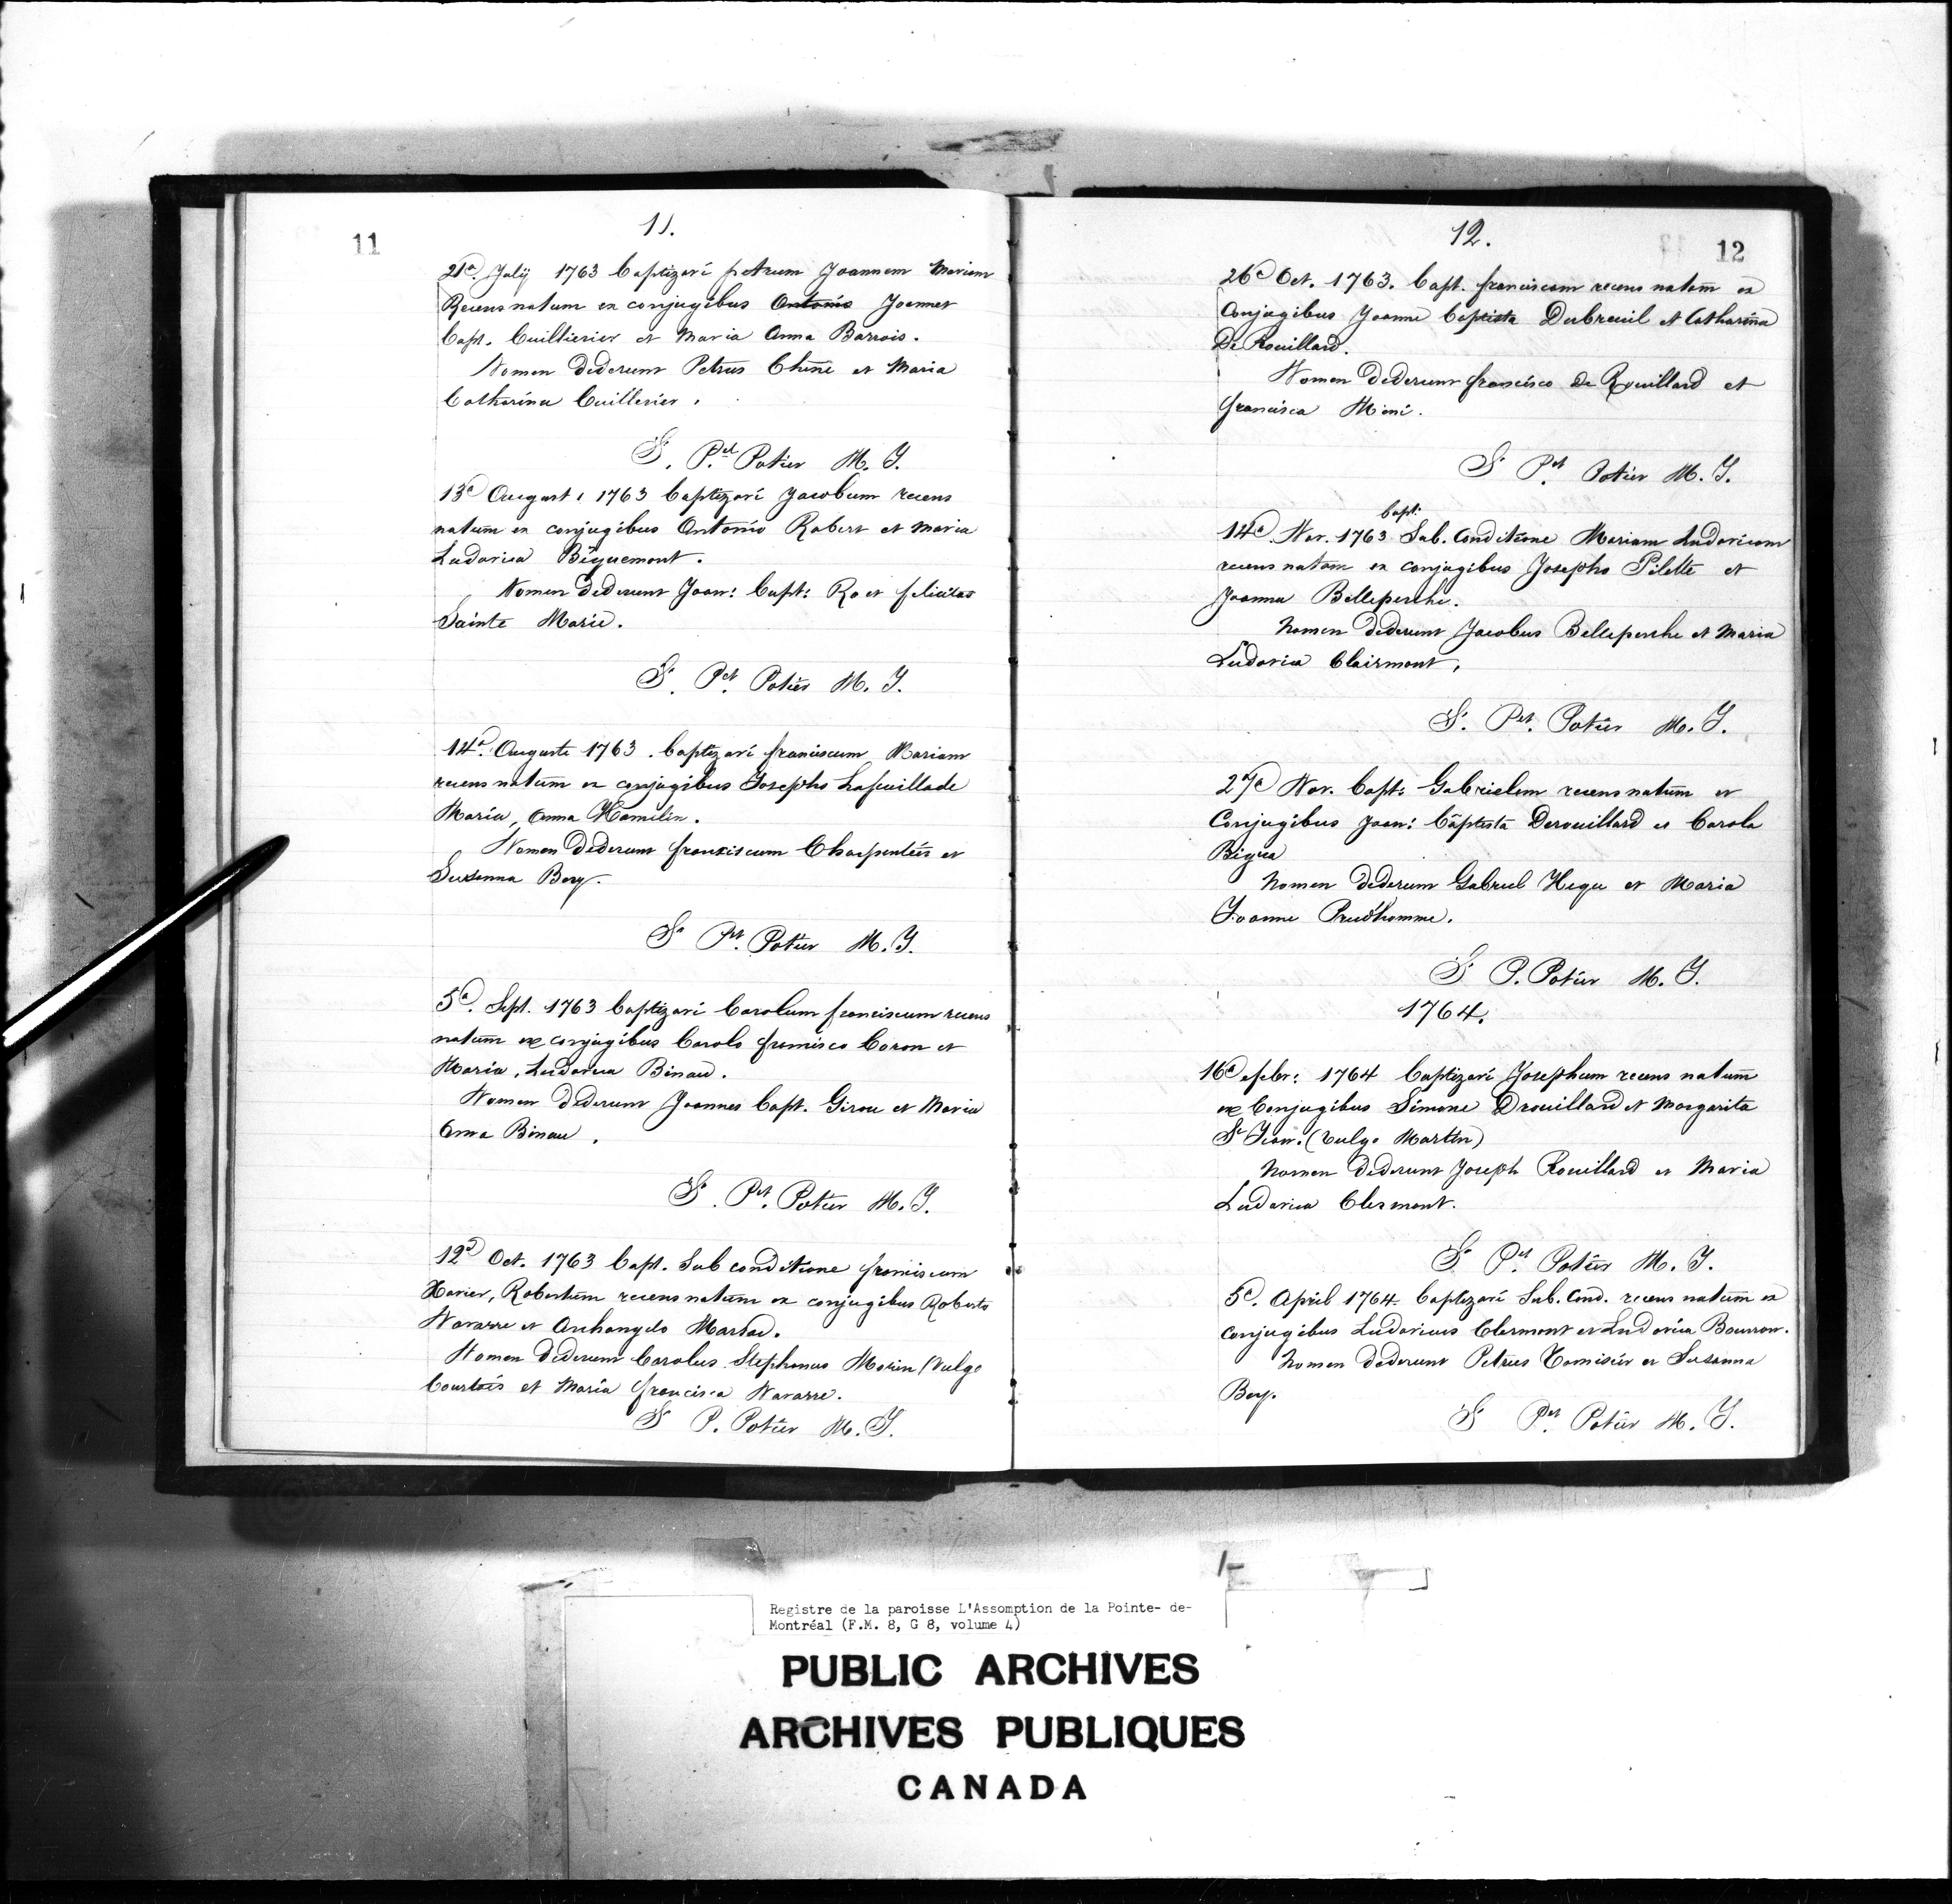 11
11.
21a. Julij 1763 baptizavi petrum Joannem Mariam
Recens natum ex conjugibus Antonio Joannes
bapt. Cuillierier et Maria Anna Barrois.
Nomen Dederunt Petrus Chêne et Maria
Catharina Cuillerier.
S. Pet. Potier M. J.
13a August: 1763 baptizavi Jacobum recens
natum ex conjugibus Antonio Robert et Maria
Ludovica Bêquemont.
Nomen Dederunt Joan: bapt: Ro et felicitas
Sainte Marie.
S. Pet. Potier M. J.
14a. Auguste 1763. baptizavi franciscum Mariam
recens natum ex conjugibus Josepho Lafeuillade
Maria, Anna Hamelin.
Nomen Dederunt franciscum Charpentier et
Susanna Bery.
S. Pet. Potier M. J.
5a. Sept. 1763 baptizavi Carolum franciscum recens
natum ex conjugibus Carolo francisco Caron et
Maria, Ludovica Binau.
Nomen Dederunt Joannes bapt. Girou et Maria
Anna Binau.
S. Pet. Potier M. J.
12a Oct. 1763 bapt. Sub conditione franciscum
Xavier, Robertum recens natum ex conjugibus Roberto
Navarre et Archangelo Marsac.
Nomen Dederunt Carolus Stephanus Morin (Vulgo
Courtois et Maria francisca Navarre.
S P. Potier M. J.
12.
12
26a Oct. 1763. bapt. franciscam recens natam ex
Conjugibus Joanne baptista Dubreuil et Catharina
De Rouillard.
Nomen Dederunt francisco De Rouillard et
francisca Mini.
S Pet. Potier M. J.
bapt:
14a. Nov. 1763 Sub. Conditione Mariam Ludovicam
recens natam ex conjugibus Josepho Pilette et
Joanna Belleperche.
Nomen dederunt Jacobus Belleperche et Maria
Ludovica Clairmont.
S. Pet. Potier M. J.
27a Nov. bapt: Gabrielem recens natum ex
Conjugibus Joan: baptista Derouillard et Carola
Bigra
Nomen dederunt Gabriel Hegu et Maria
Joanne Prud'homme.
S P. Potier M. J.
1764.
16a febr: 1764 baptizavi Josephum recens natum
ex Conjugibus Simone Drouillard et Margarita
St Jean. (Vulgo Martin)
Nomen Dederunt Joseph Rouillard et Maria
Ludovica Clermont.
S Pet. Potier M. J.
5a. April 1764. baptizavi Sub. Cond. recens natum ex
conjugibus Ludovicus Clermont et Ludovica Bourron.
Nomen dederunt Petrus Cornisier et Susanna
Bery.
S Pet. Potier M. J.
Registre de la paroisse L'Assomption de la Pointe- de-
Montréal (F.M. 8, G 8, volume 4)
PUBLIC ARCHIVES
ARCHIVES PUBLIQUES
CANADA